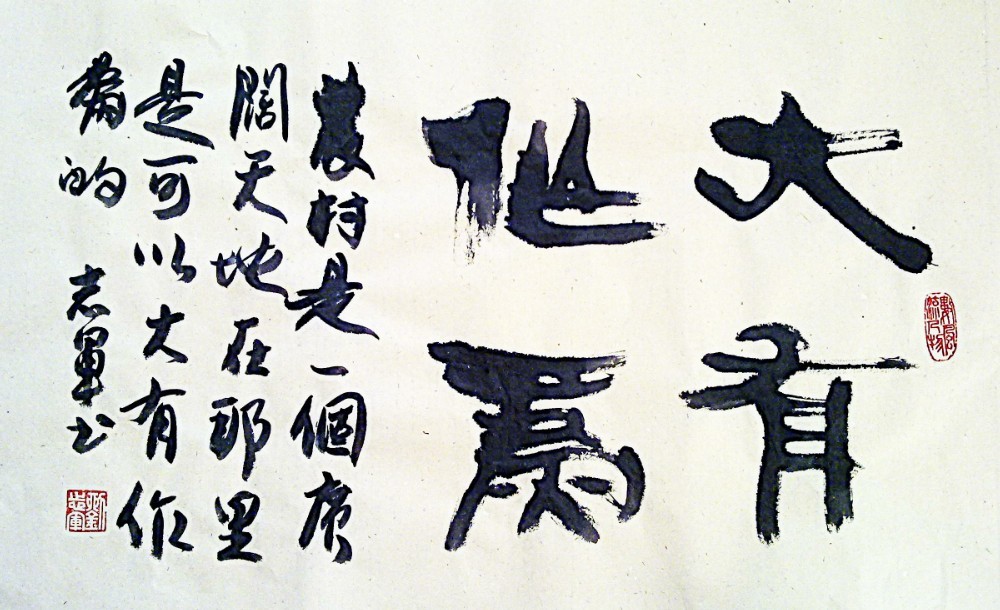 大有
作為
農村是一個廣
闊天地在那里
是可以大有作
為的 志軍书
數風流人物